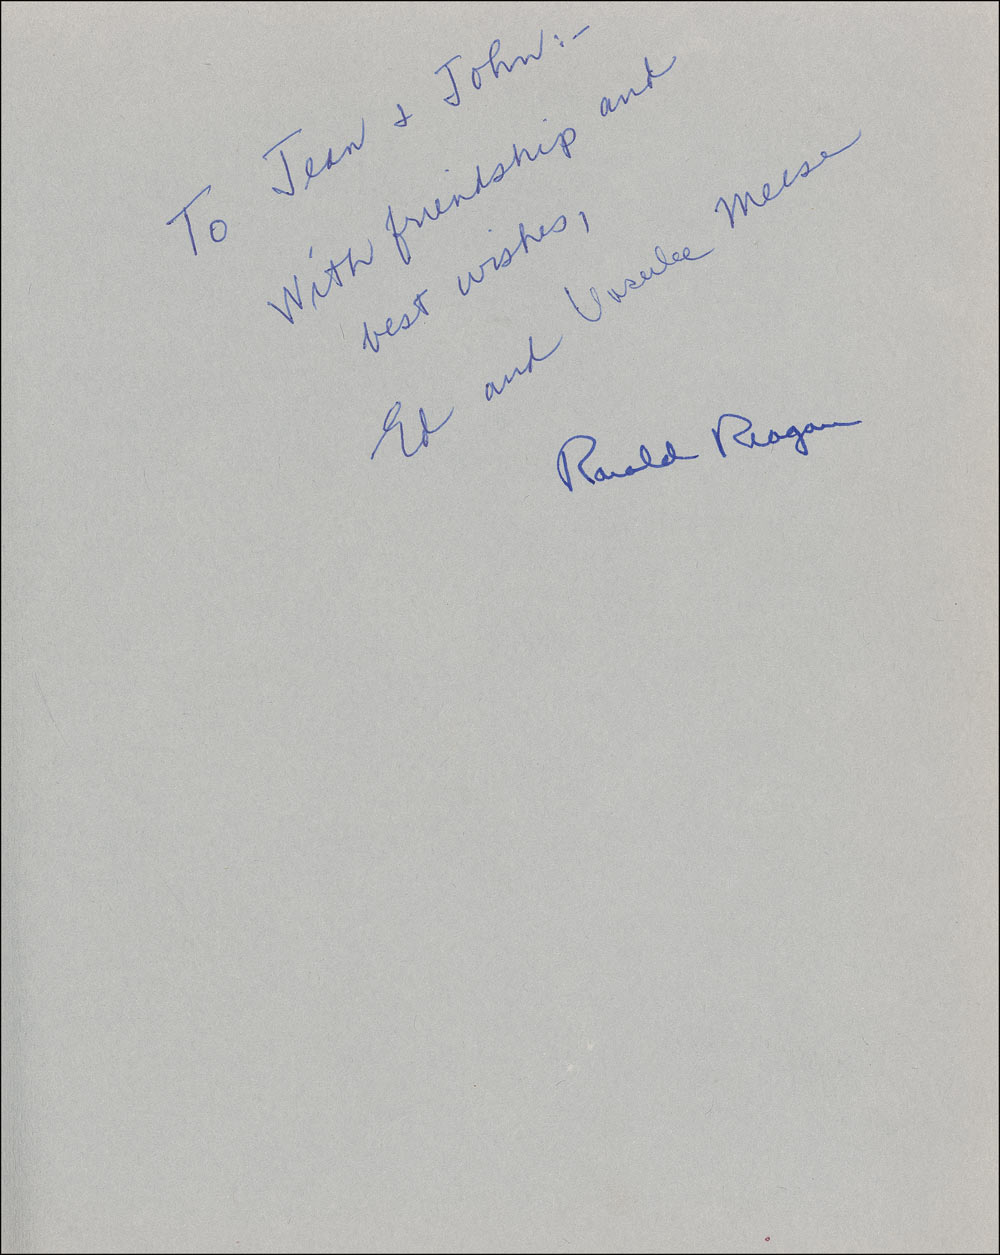 To Jean & John:-
With friendship and
best wishes,
Ed and Ursula Meese
Ronald Reagan